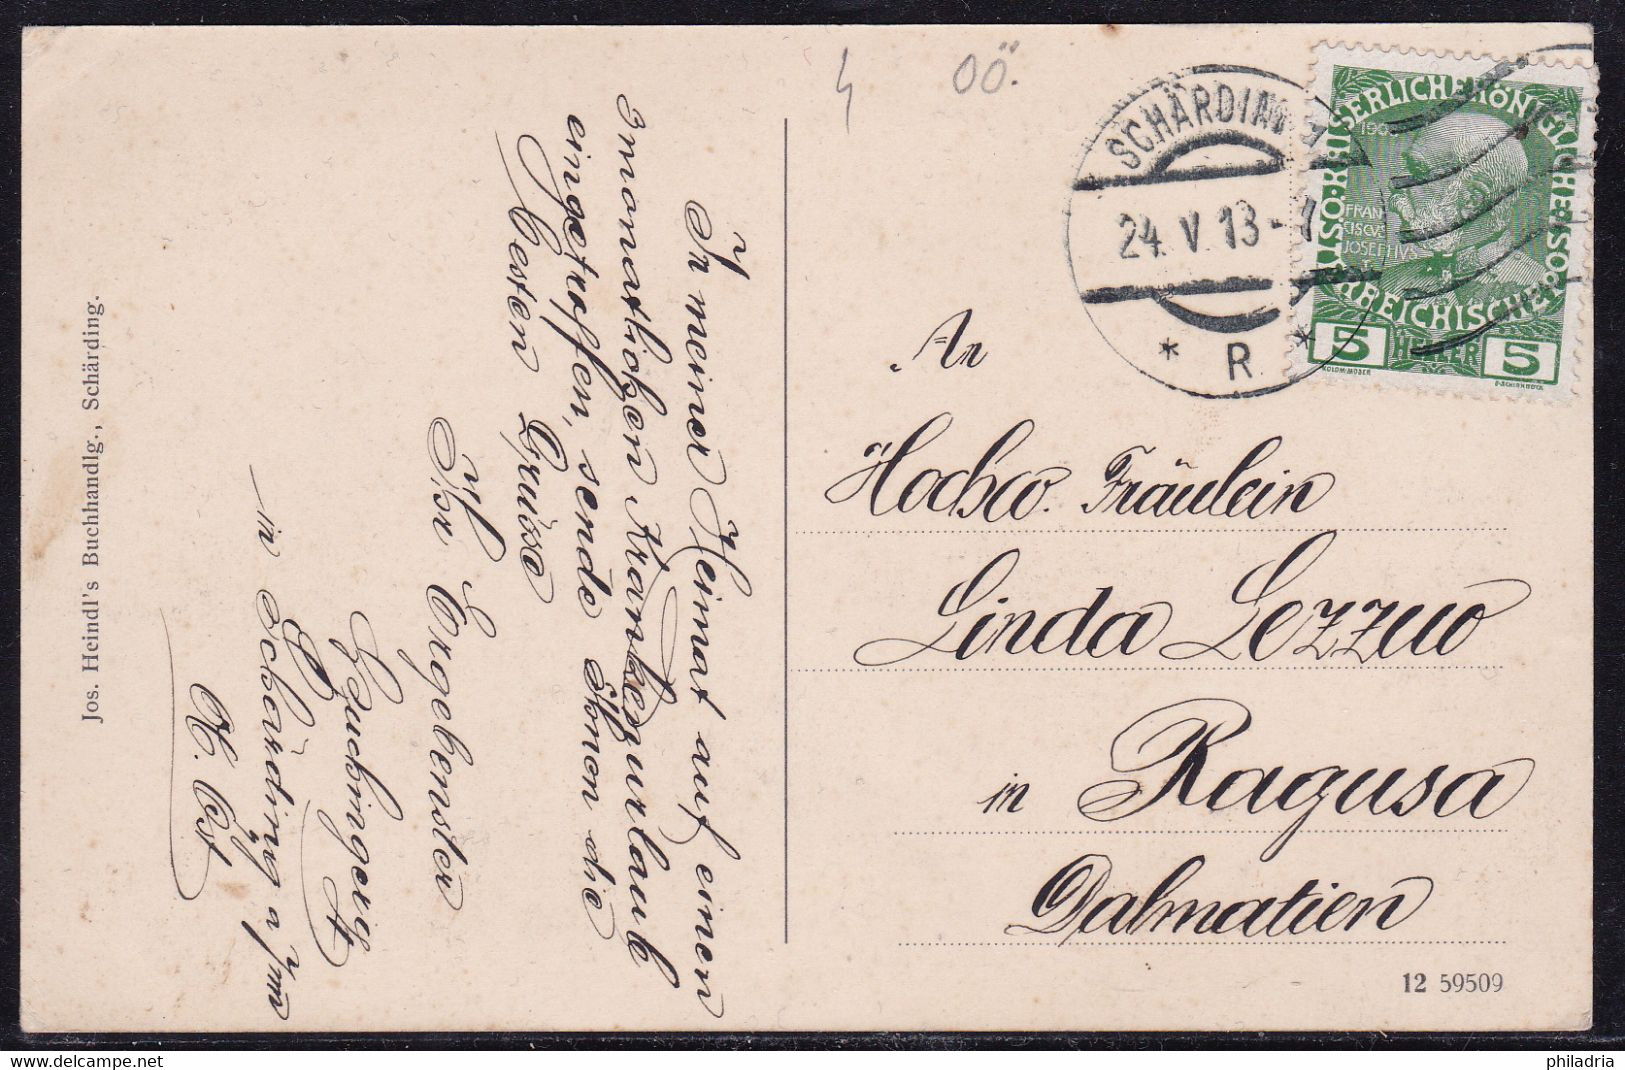 4 OÖ.
SCHÄRDING
24. V. 13-
* R *
KAISERLICHE KÖNIGLICHE ÖSTERREICHISCHE POST
FRAN
CISCVS
JOSEPHVS
5 HELLER 5
KOLOM·MOSER
An
Hochw. Fräulein
Linda Lozzuo
in Ragusa
Dalmatien
12 59509
In meiner Heimat auf einen
3monatlichen Krankenurlaub
eingetroffen, sende Ihnen die
besten Grüsse
Ihr Ergebenster
in Schärding a/Inn
O. Öst.
Jos. Heindl's Buchhandlg., Schärding.
delcampe.net
philadria